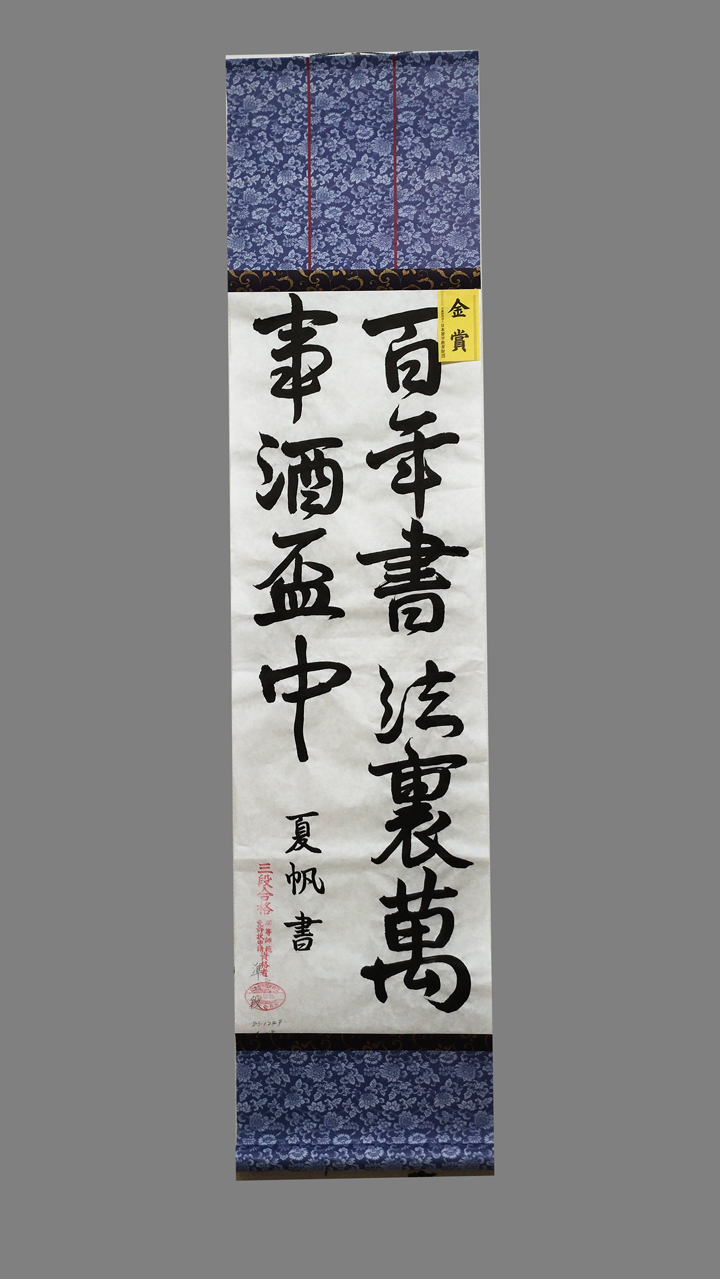 百年書法裏萬
事酒盃中
夏帆書
金賞
三段合格